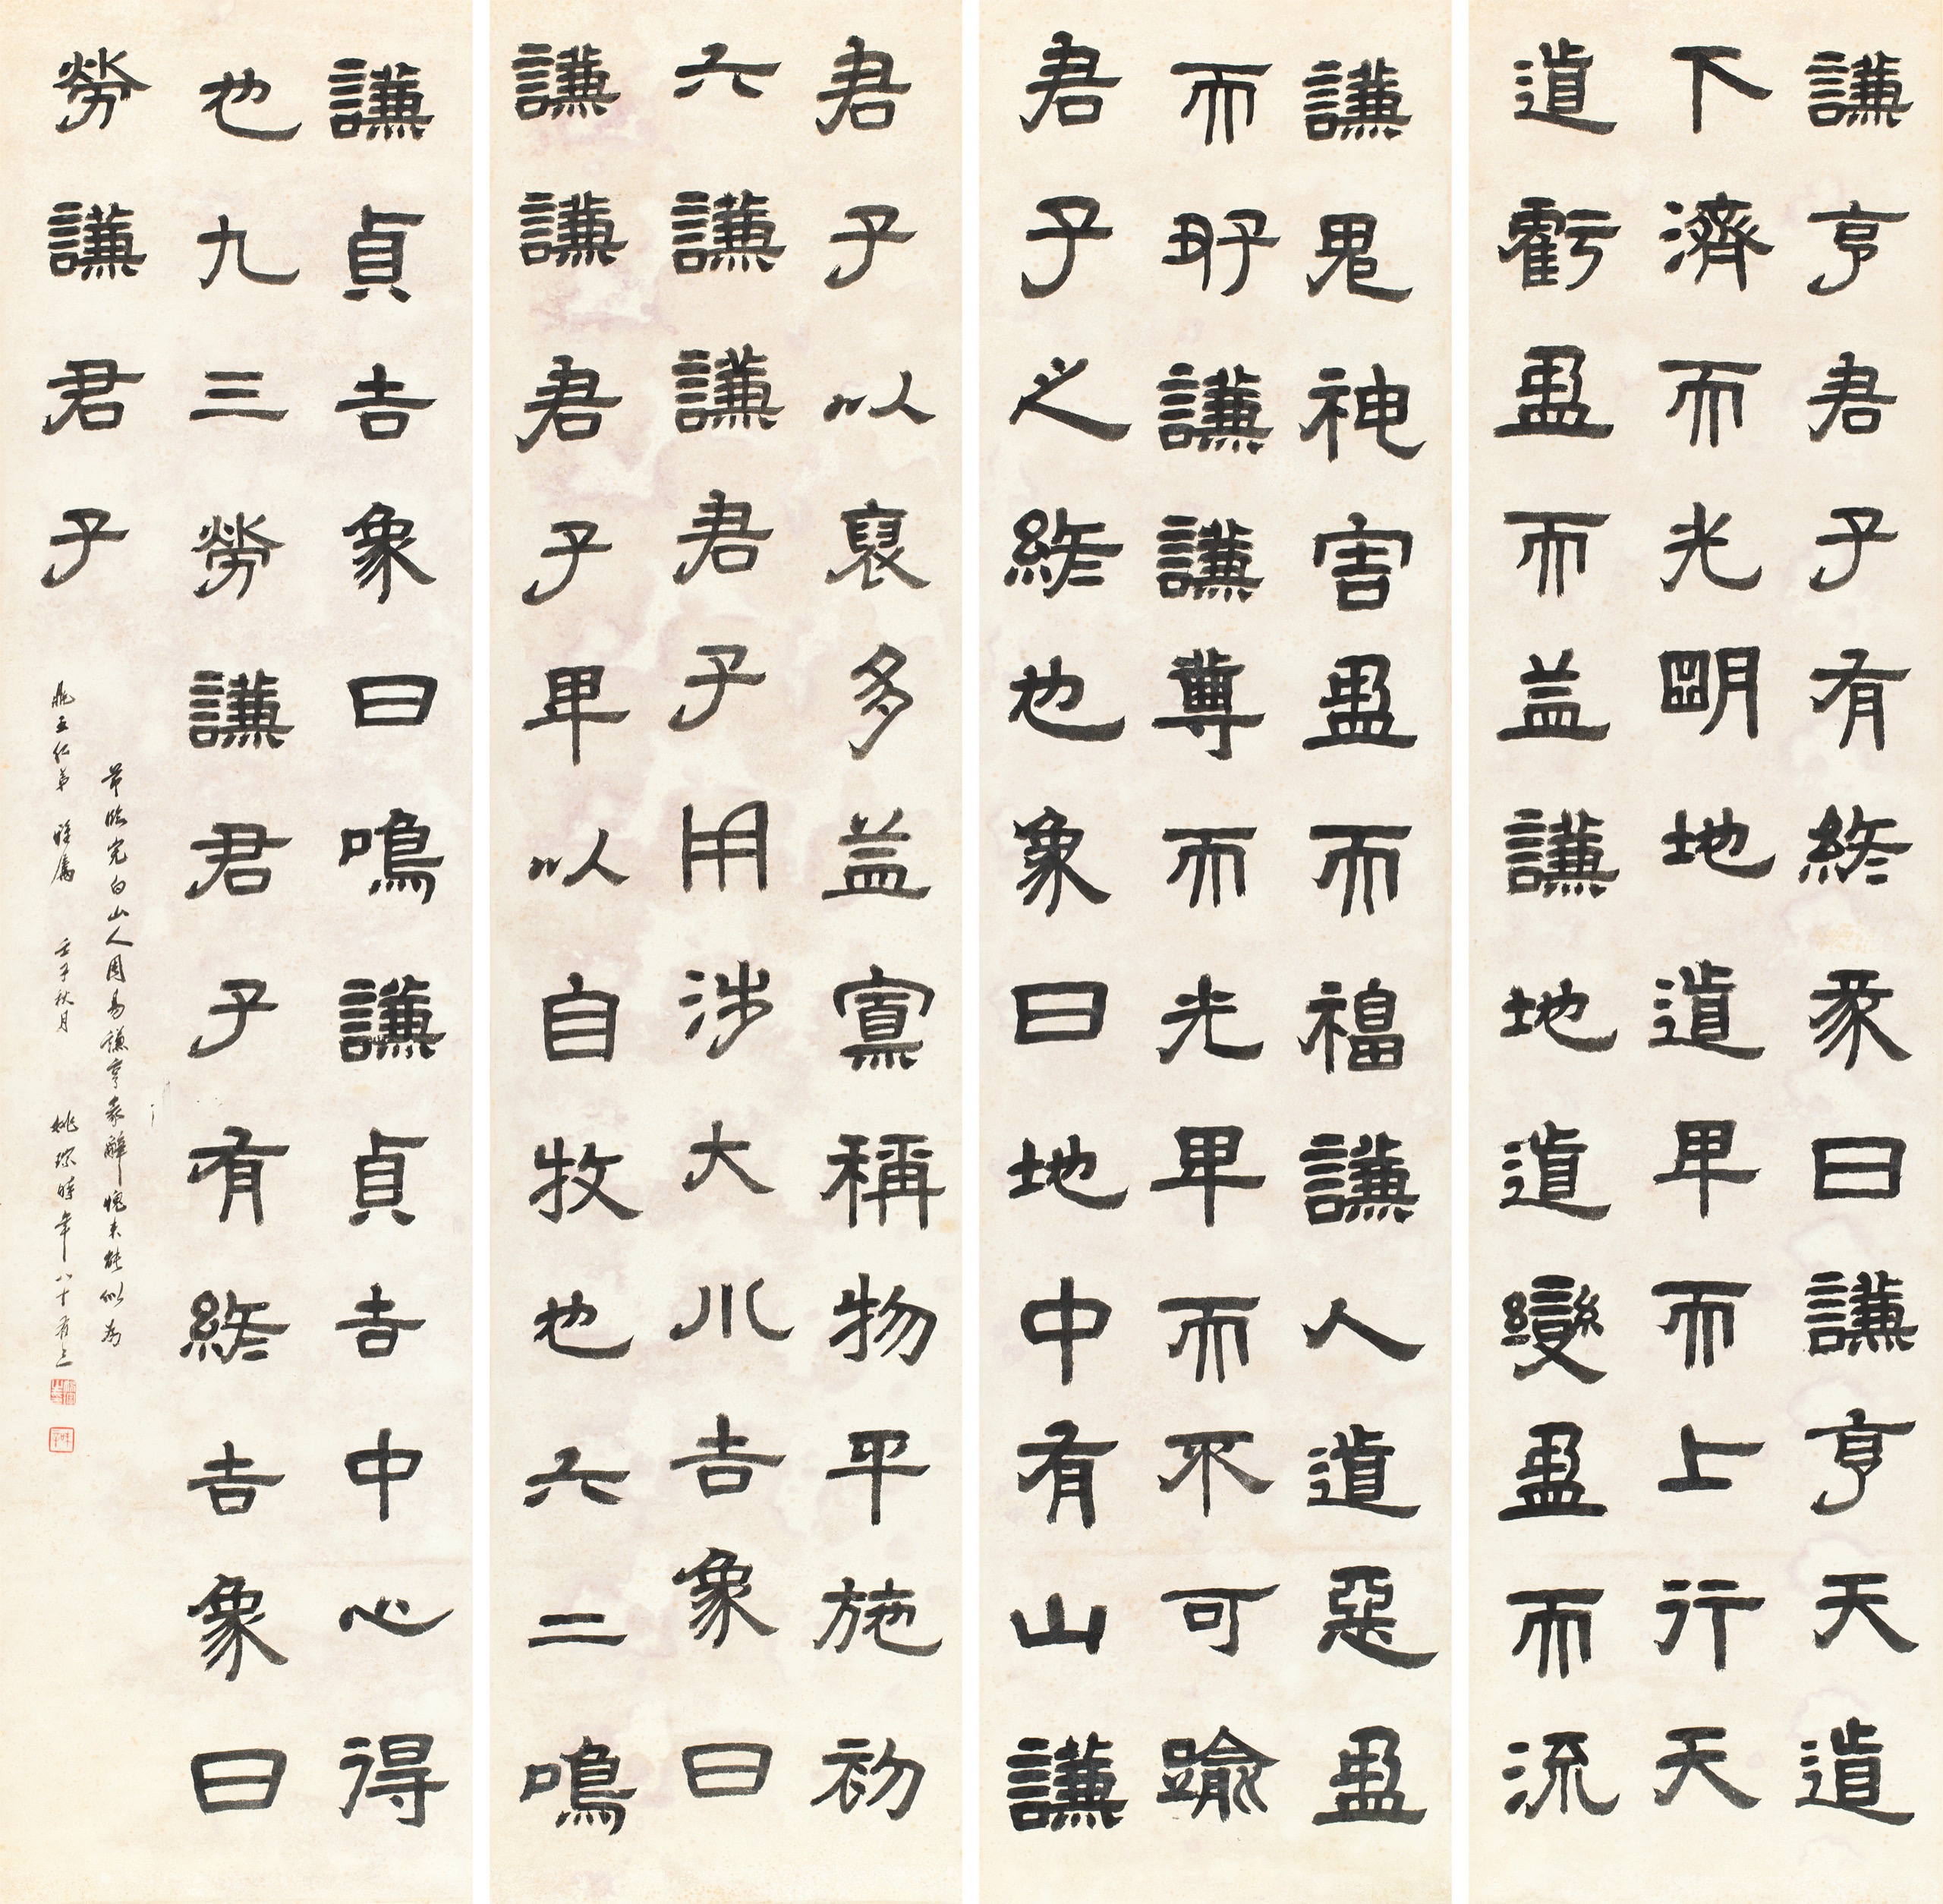 謙亨君子有終彖曰謙亨天道
下濟而光朙地道卑而上行天
道虧盈而益謙地道變盈而流
謙鬼神害盈而福謙人道惡盈
而好謙謙尊而光卑而不可踰
君子之終也象曰地中有山謙
君子以裒多益寡稱物平施初
六謙謙君子用涉大川吉象曰
謙謙君子卑以自牧也六二鳴
謙貞吉象曰鳴謙貞吉中心得
也九三勞謙君子有終吉象曰
勞謙君子
節臨完白山人周易謙亨彖辭愧未能似為
五仁弟 雅屬 壬子秋月 姚琮時年八十有三